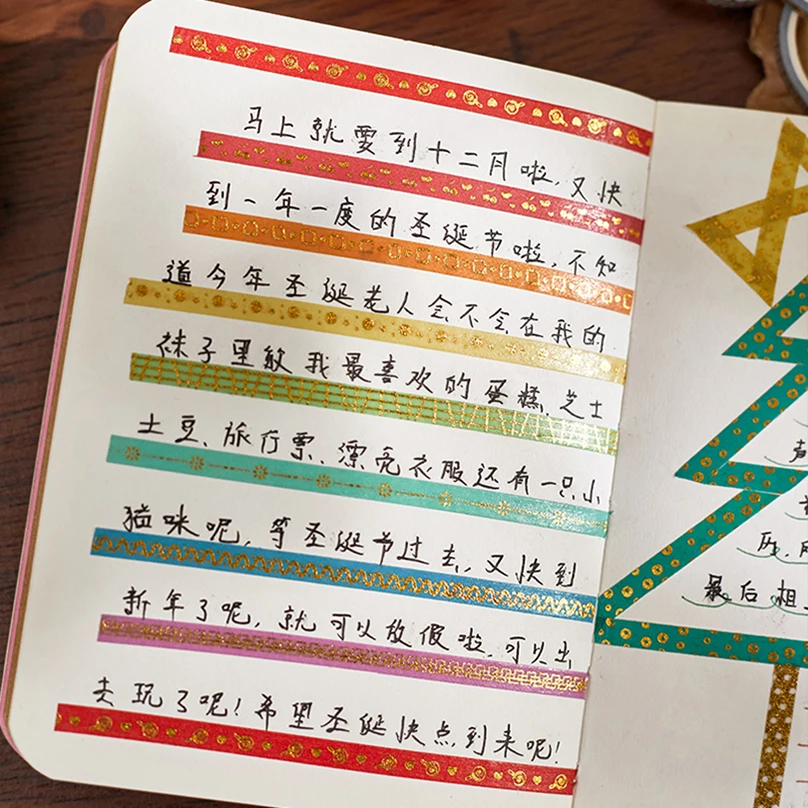 马上就要到十二月啦,又快
到一年一度的圣诞节啦,不知
道今年圣诞老人会不会在我的
袜子里放我最喜欢的蛋糕、芝士
土豆、旅行票、漂亮衣服还有一只小
猫咪呢,等圣诞节过去,又快到
新年了呢,就可以放假啦,可以出
去玩了呢!希望圣诞快点到来呢!
最后相